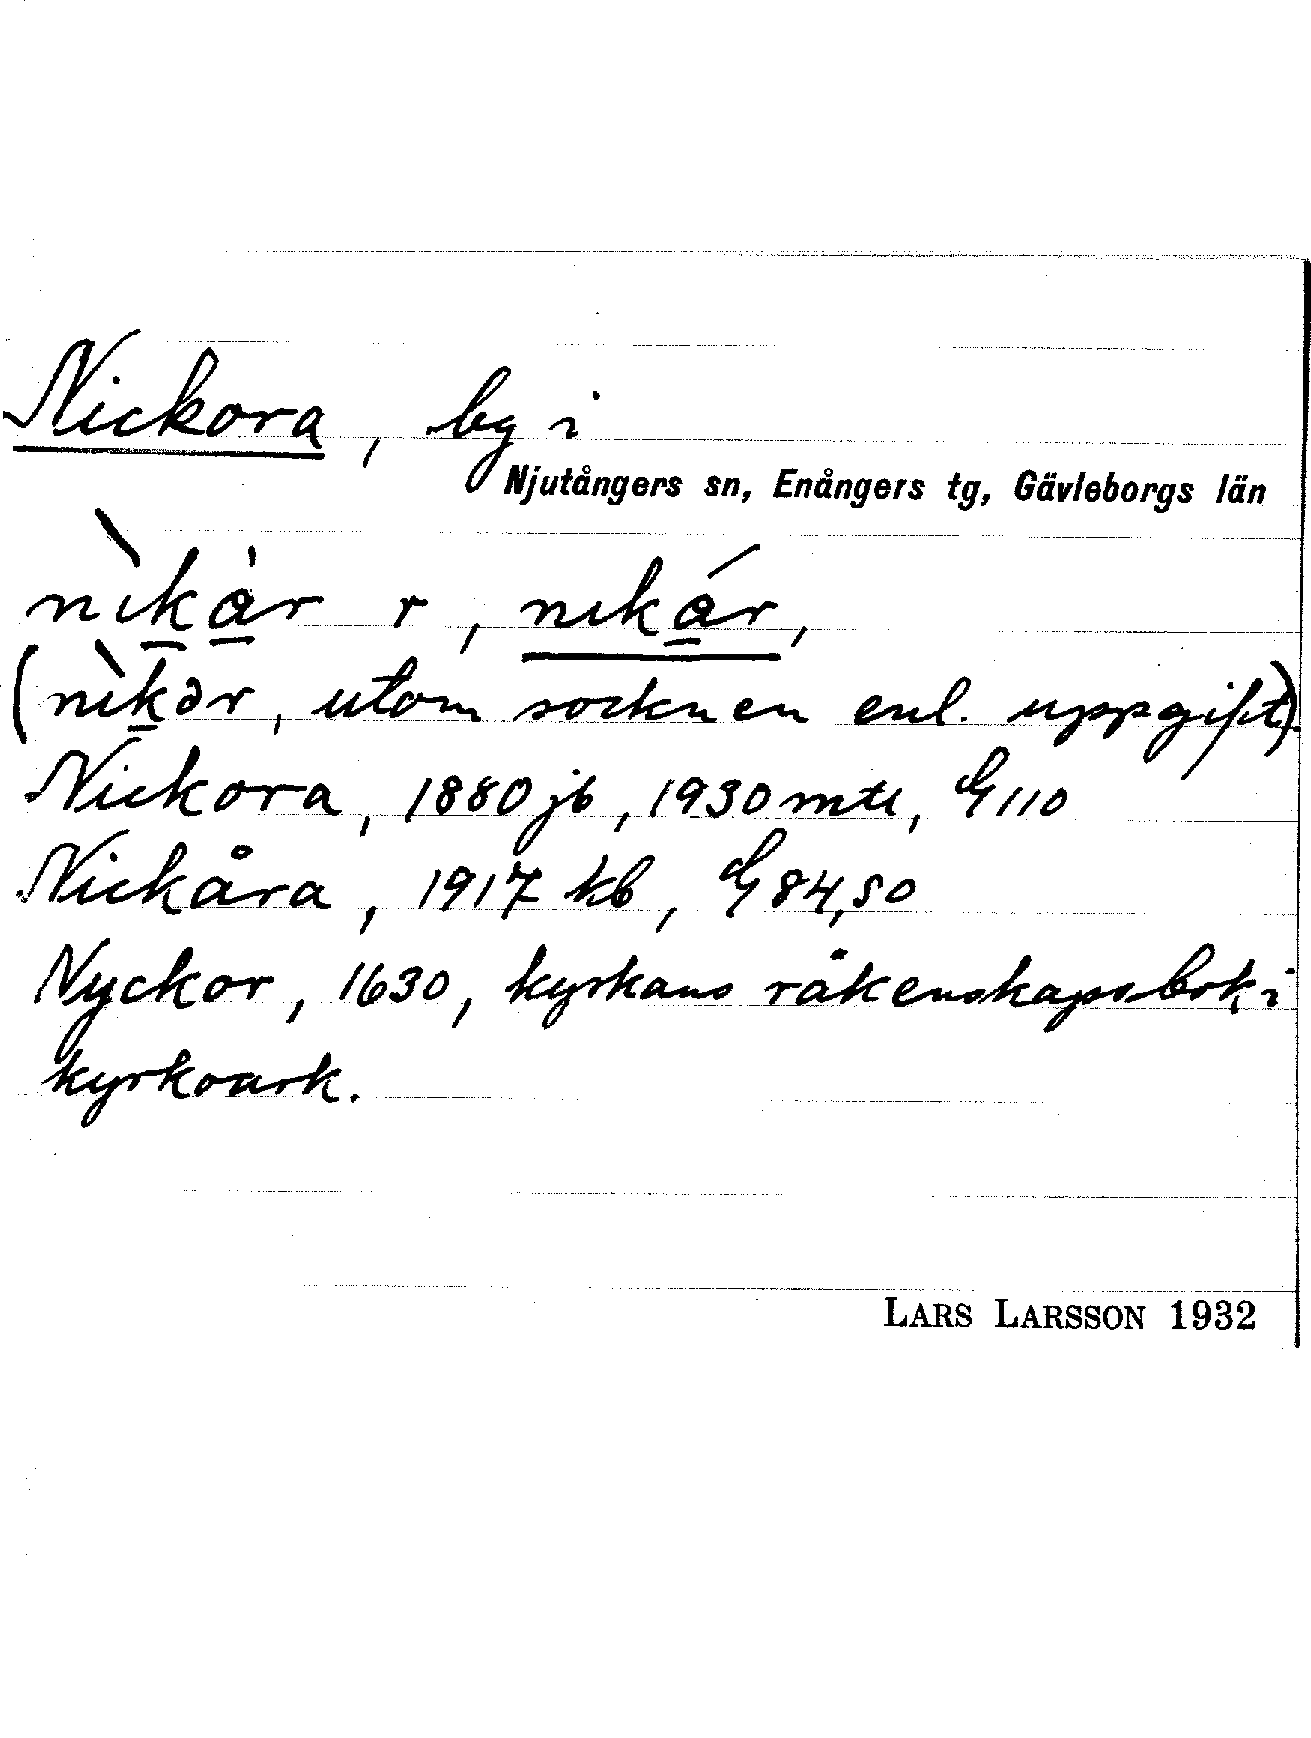 Nickora, by i
Njutångers sn, Enångers tg, Gävleborgs län
nìkàr r, nikár,
(nìkər, utom socknen enl. uppgift).
Nickora, 1880 jb, 1930 mtl, G 110
Nickåra, 1917 kb, G 84,50
Nyckor, 1630, kyrkans räkenskapsbok i
kyrkoark.
LARS LARSSON 1932